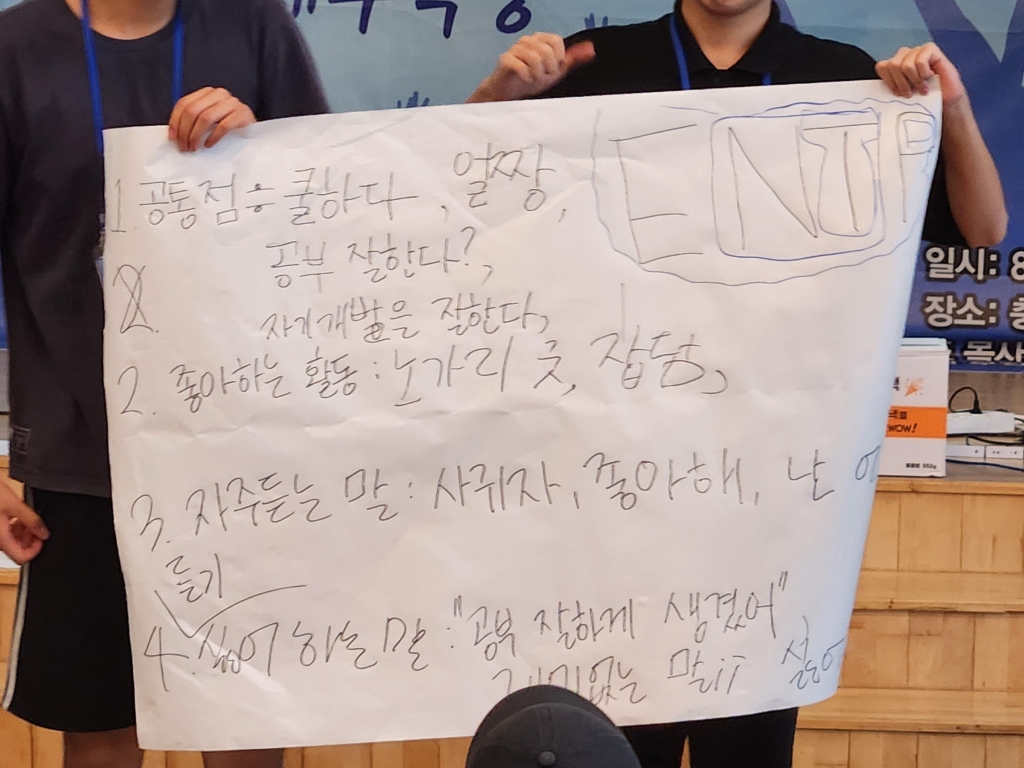 ENTP
1. 공통점 : 쿨하다, 얼짱,
공부 잘한다?,
2.
자기개발을 잘한다,
2. 좋아하는 활동 : 노가리 굿, 잡담,
3. 자주듣는 말 : 사귀자, 좋아해, 난
듣기
4. 싫어 하는 말 : "공부 잘하게 생겼어",
재미없는 말ii
일시: 8
장소: 충
목사
WOW!